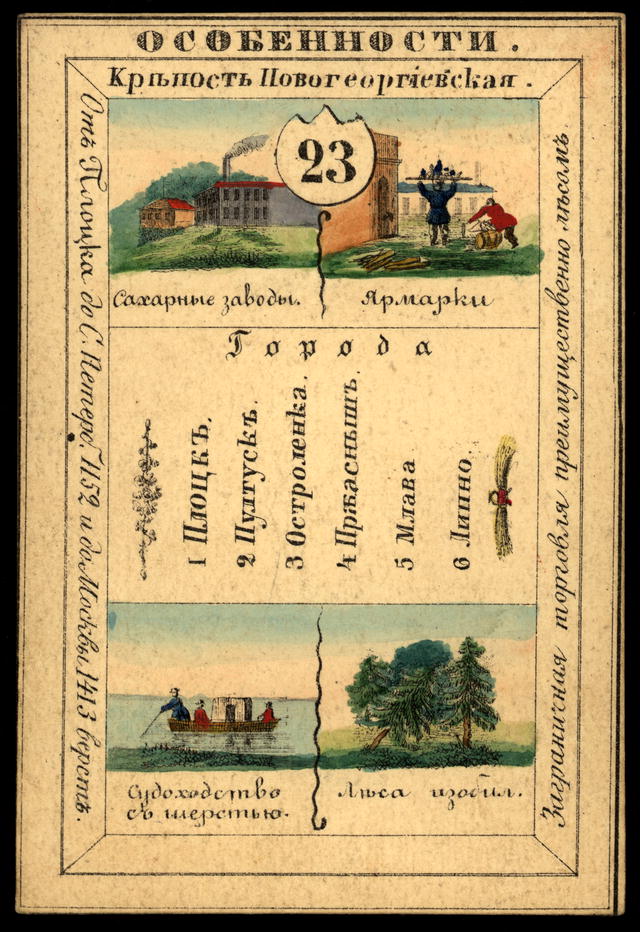 ОСОБЕННОСТИ.
Крѣпость Новогеоргіевская.
Отъ Плоцка до С. Петерб. 1152 и до Москвы 1413 верстъ.
23
Сахарные заводы.
Ярмарки
Города
1 Плоцкъ.
2 Пултускъ.
3 Остроленка.
4 Пржаснышъ.
5 Млава
6 Липно
Судоходство
съ шерстью.
Лѣса изобил.
Заграничная торговля преимущественно лѣсомъ.